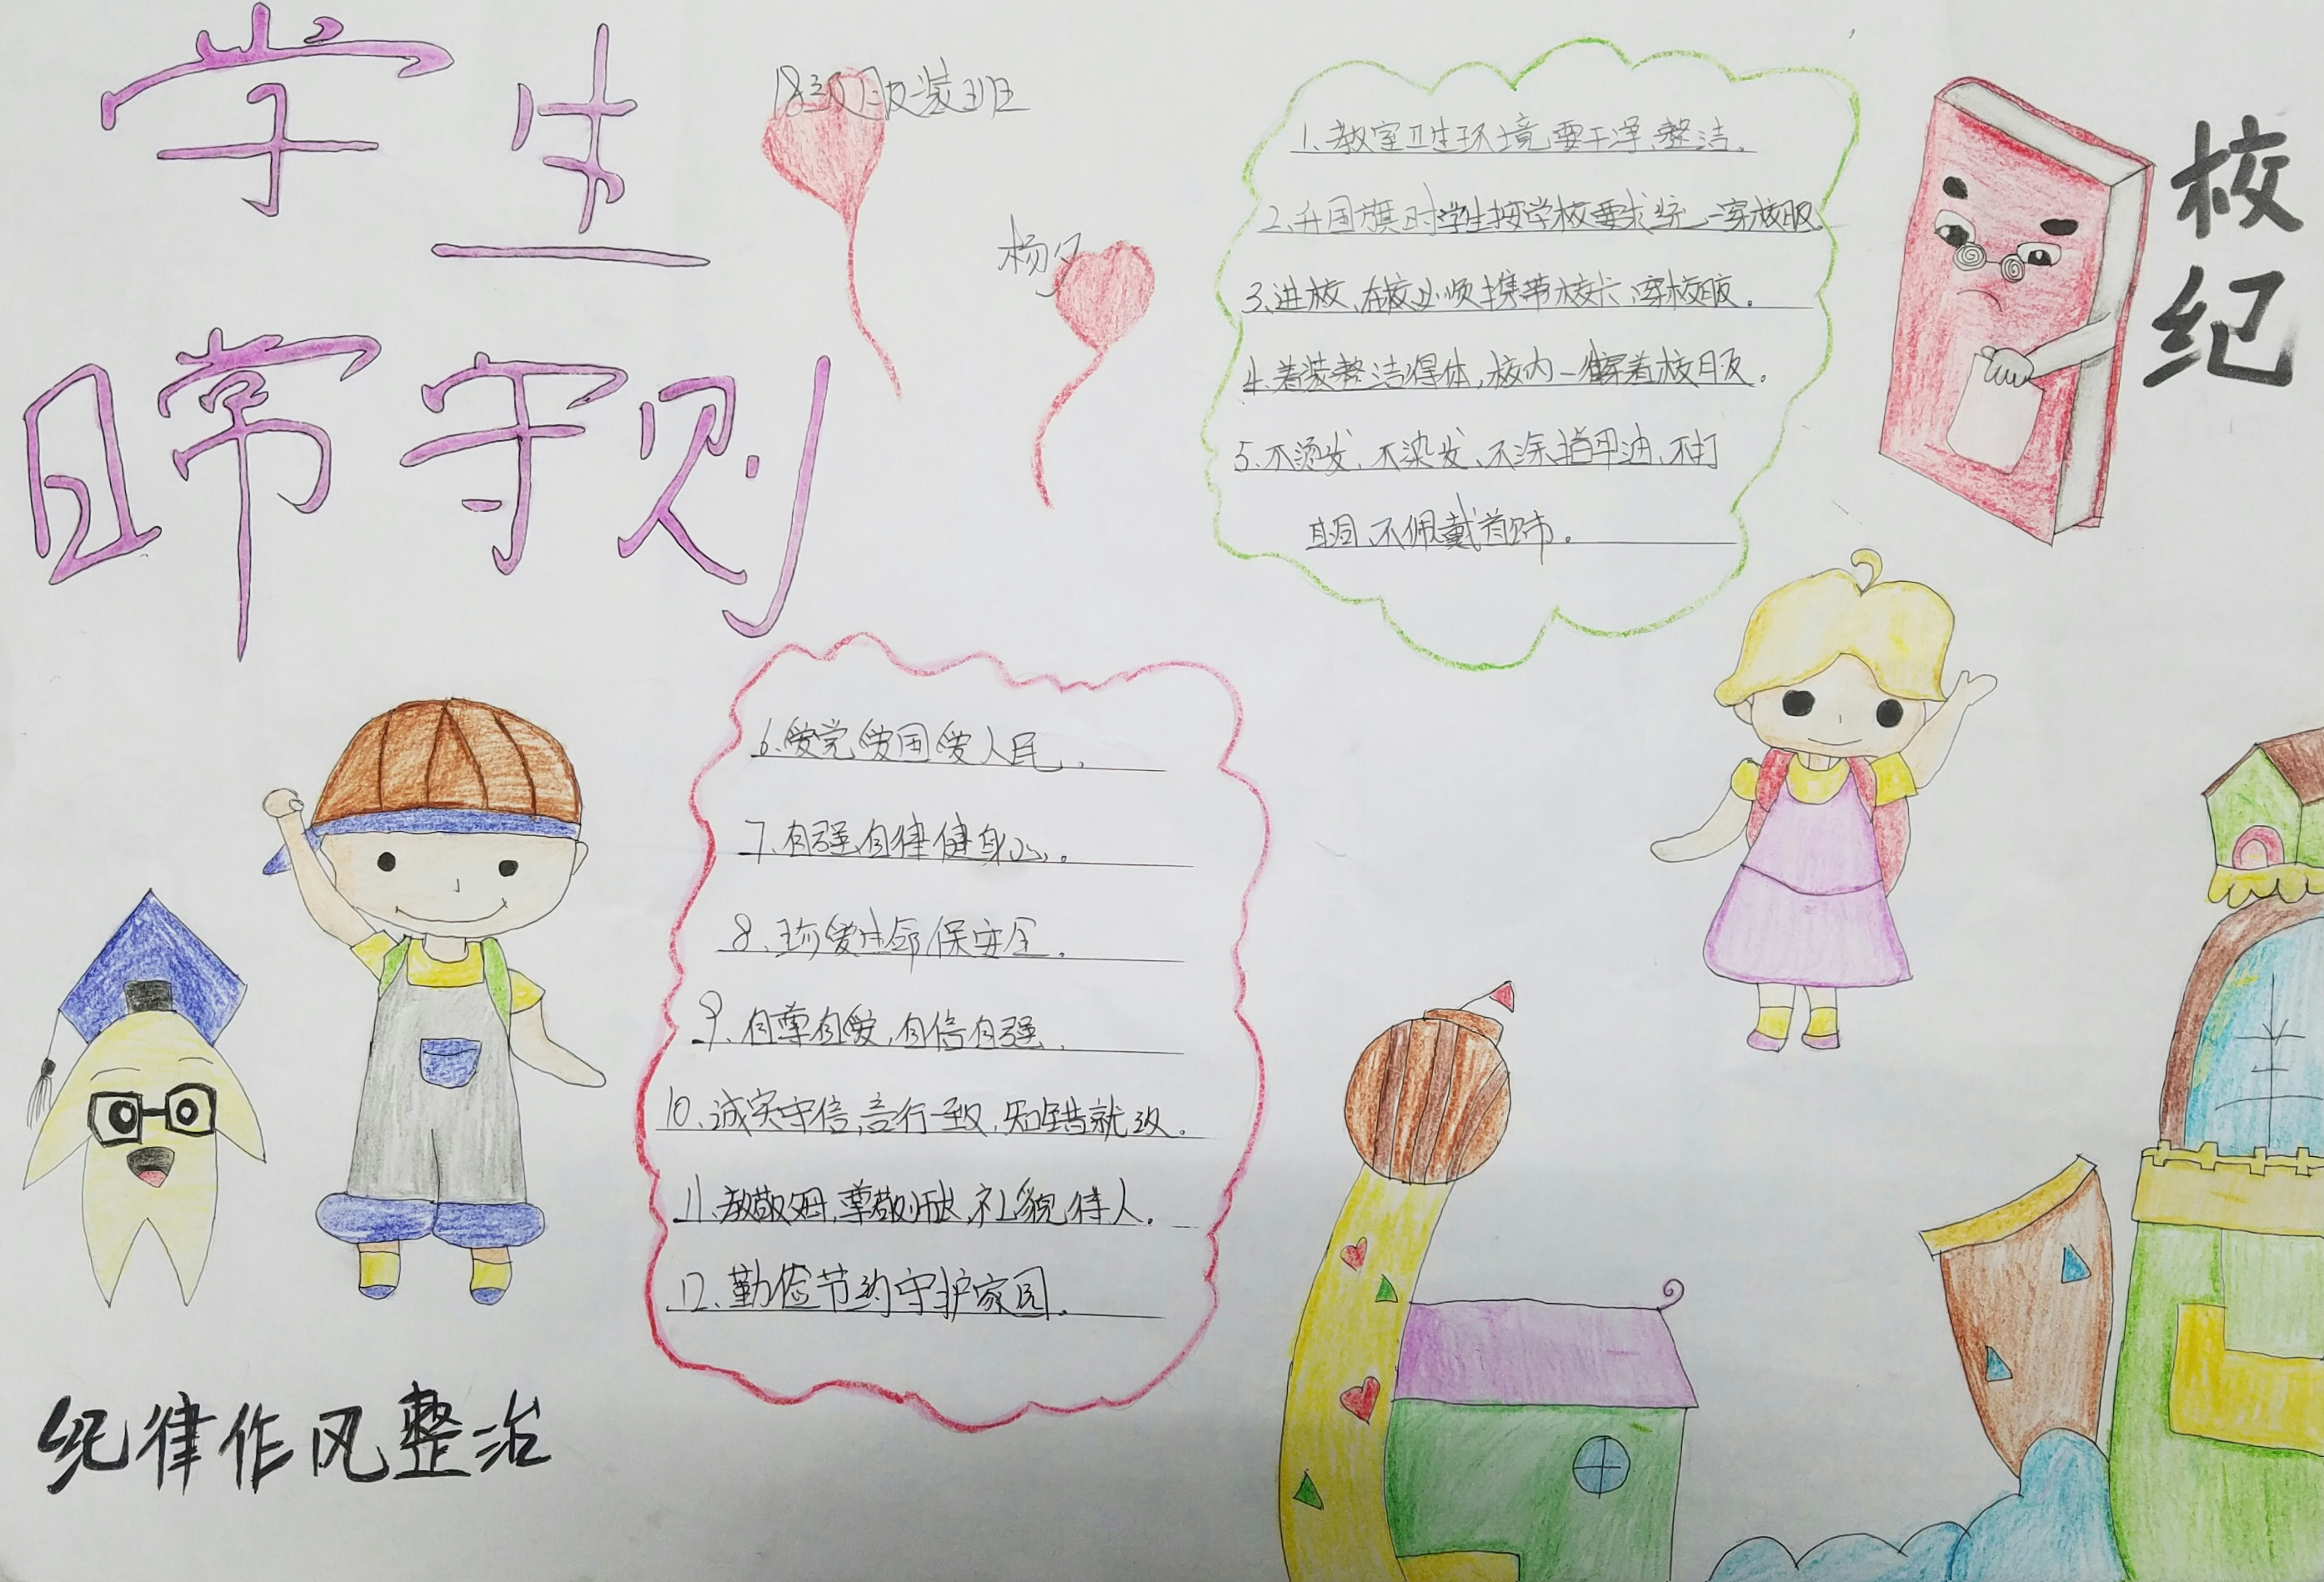 学生
日常守则
18级服装班
杨夕
校纪
1、教室卫生环境要干净、整洁.
2、升国旗时学生按学校要求统一穿校服
3、进校、在校必须携带校卡、穿校服。
4、着装整洁得体,校内一律穿着校服。
5、不烫发、不染发、不涂指甲油、不打
耳洞、不佩戴首饰。
6、爱党爱国爱人民.
7、自强自律健身心。
8、珍爱生命保安全.
9、自尊自爱,自信自强.
10、诚实守信,言行一致,知错就改.
11、敬母,尊敬师长,礼貌待人.
12、勤俭节约守护家园.
纪律作风整治